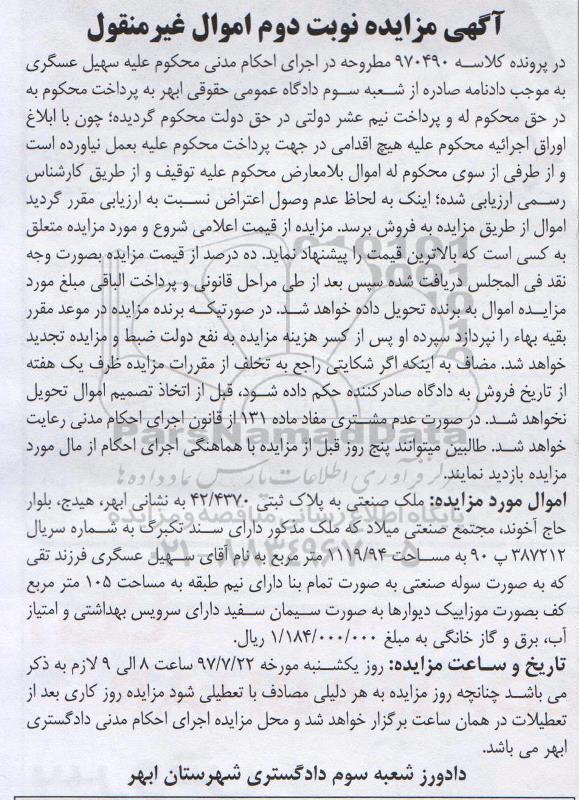 آگهی مزایده نوبت دوم اموال غیرمنقول
در پرونده کلاسه ۹۷۰۴۹۰ مطروحه در اجرای احکام مدنی محکوم علیه سهیل عسگری
به موجب دادنامه صادره از شعبه سوم دادگاه عمومی حقوقی ابهر به پرداخت محکوم به
در حق محکوم له و پرداخت نیم عشر دولتی در حق دولت محکوم گردیده؛ چون با ابلاغ
اوراق اجرائیه محکوم علیه هیچ اقدامی در جهت پرداخت محکوم علیه بعمل نیاورده است
و از طرفی از سوی محکوم له اموال بلامعارض محکوم علیه توقیف و از طریق کارشناس
رسمی ارزیابی شده؛ اینک به لحاظ عدم وصول اعتراض نسبت به ارزیابی مقرر گردید
اموال از طریق مزایده به فروش برسد. مزایده از قیمت اعلامی شروع و مورد مزایده متعلق
به کسی است که بالاترین قیمت را پیشنهاد نماید. ده درصد از قیمت مزایده بصورت وجه
نقد فی المجلس دریافت شده سپس بعد از طی مراحل قانونی و پرداخت الباقی مبلغ مورد
مزایده اموال به برنده تحویل داده خواهد شد. در صورتیکه برنده مزایده در موعد مقرر
بقیه بهاء را نپردازد سپرده او پس از کسر هزینه مزایده به نفع دولت ضبط و مزایده تجدید
خواهد شد. مضاف به اینکه اگر شکایتی راجع به تخلف از مقررات مزایده ظرف یک هفته
از تاریخ فروش به دادگاه صادرکننده حکم داده شود، قبل از اتخاذ تصمیم اموال تحویل
نخواهد شد. در صورت عدم مشتری مفاد ماده ۱۳۱ از قانون اجرای احکام مدنی رعایت
خواهد شد. طالبین میتوانند پنج روز قبل از مزایده با هماهنگی اجرای احکام از مال مورد
مزایده بازدید نمایند.
اموال مورد مزایده: ملک صنعتی به پلاک ثبتی ۴۲/۴۳۷۰ به نشانی ابهر، هیدج، بلوار
حاج آخوند، مجتمع صنعتی میلاد که ملک مذکور دارای سند تکبرگ به شماره سریال
۳۸۷۲۱۲ پ ۹۰ به مساحت ۱۱۱۹/۹۴ متر مربع به نام آقای سهیل عسگری فرزند تقی
که به صورت سوله صنعتی به صورت تمام بنا دارای نیم طبقه به مساحت ۱۰۵ متر مربع
کف بصورت موزاییک دیوارها به صورت سیمان سفید دارای سرویس بهداشتی و امتیاز
آب، برق و گاز خانگی به مبلغ ۱/۱۸۴/۰۰۰/۰۰۰ ریال.
تاریخ و ساعت مزایده: روز یکشنبه مورخه ۹۷/۷/۲۲ ساعت ۸ الی ۹ لازم به ذکر
می باشد چنانچه روز مزایده به هر دلیلی مصادف با تعطیلی شود مزایده روز کاری بعد از
تعطیلات در همان ساعت برگزار خواهد شد و محل مزایده اجرای احکام مدنی دادگستری
ابهر می باشد.
دادورز شعبه سوم دادگستری شهرستان ابهر
ParsNamadData